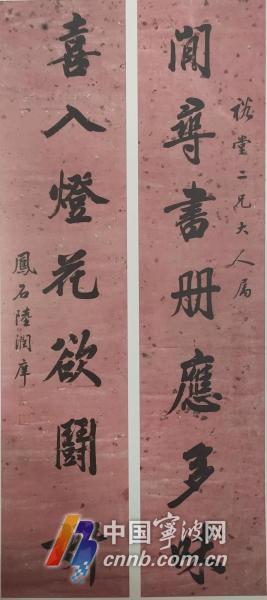 閒尋書册應多味
堂二兄大人属
喜入燈花欲鬭
鳳石陸潤庠
中国寧波网
cnnb.com.cn